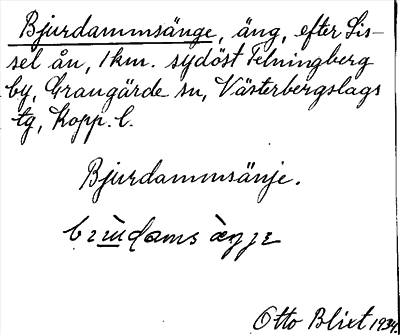 Bjurdammsänge, äng, efter Sis-
sel ån, 1 km. sydöst Telningberg
by, Grangärde sn, Västerbergslags
tg, Kopp. l.
Bjurdammsänje.
Otto Blixt 1934.